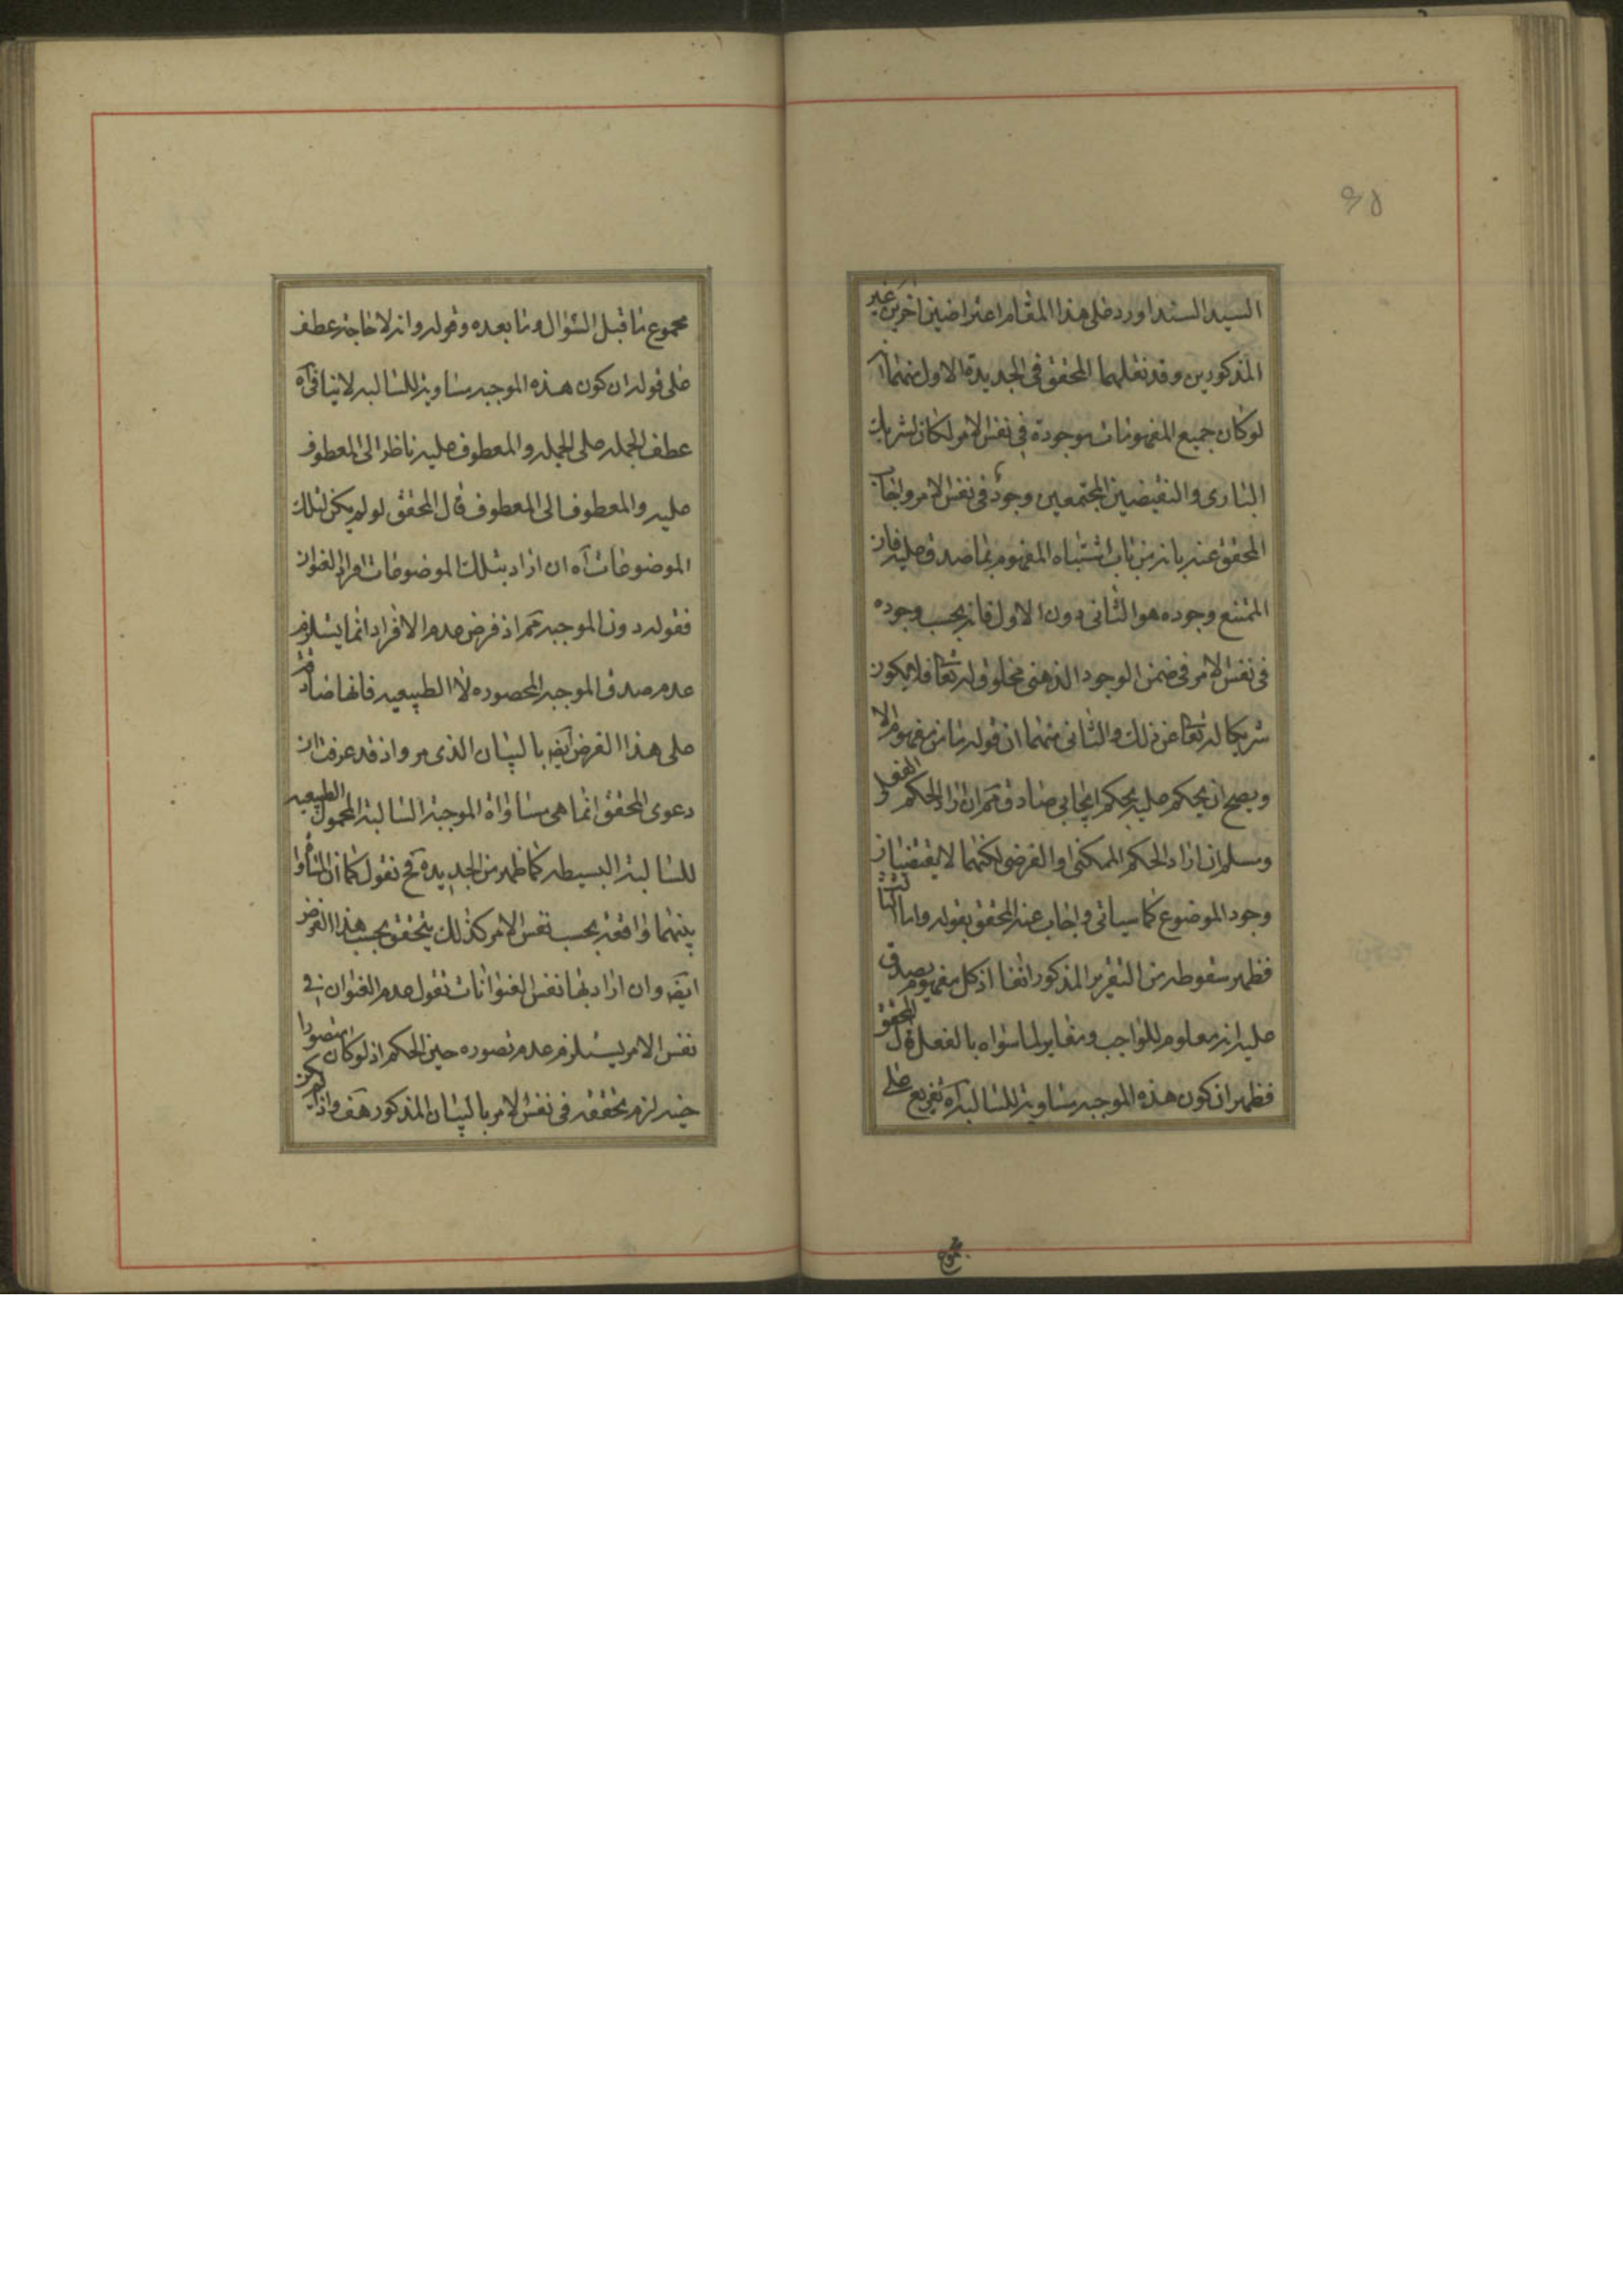 السيد السند اورد على هذا المقام اعتراضين اخرين غير
المذكورين وقد نقلهما المحقق في الجديدة الاول منهما انه
لو كان جميع المفهومات موجودة في نفس الامر لكان لشريك
الباري والنقيضين المجتمعين وجود في نفس الامر واجاب
المحقق عنه بانه من باب اشتباه المفهوم بما صدق عليه فان
الممتنع وجوده هو الثاني دون الاول فانه بحسب وجوده
في نفس الامر في ضمن الوجود الذهني مخلوق له تعا فلا يكون
شريكا له تعا عن ذلك والثاني منهما ان قوله ما من مفهوم الا
ويصح ان يحكم عليه بحكم ايجابي صادق مم ان اراد الحكم الفعلي
ومسلم ان اراد الحكم الممكني او الفرضي لكنهما لا يقتضيان
وجود الموضوع كما سياتي واجاب عنه المحقق بقوله واما
فظهر سقوطه من التقرير المذكور انفا اذ كل مفهوم يصدق
عليه انه معلوم للواجب ومغاير لما سواه بالفعل قال المحقق
فظهر ان كون هذه الموجبه مساوية للسالبه اه تفريع على
مجموع
مجموع ما قبل السؤال وما بعده وقوله وانه لا حاجة عطف
على قوله ان كون هذه الموجبه مساوية للسالبه لا ينافي اه
عطف الجمله على الجمله والمعطوف عليه ناظر الى المعطوف
عليه والمعطوف الى المعطوف قال المحقق لو لم يكن لتلك
الموضوعات اه ان اراد بتلك الموضوعات افراد العنوان
فقوله دون الموجبه مم اذ فرض عدم الافراد انما يستلزم
عدم صدق الموجبه المحصوره لا الطبيعيه فانها صادقة
على هذا الفرض ايضا بالبيان الذي مر واذ قد عرفت ان
دعوى المحقق انما هي مساواة الموجبة السالبة المحمول الطبيعيه
للسالبة البسيطه كما ظهر من الجديده فح نقول كما ان المساواة
بينهما واقعة بحسب نفس الامر كذلك يتحقق بحسب هذا الفرض
ايضا وان اراد بها نفس العنوانات نقول عدم العنوان في
نفس الامر يستلزم عدم تصوره حين الحكم اذ لو كان متصورا
حينه لزم تحققه في نفس الامر بالبيان المذكور هف واذا لم يكن